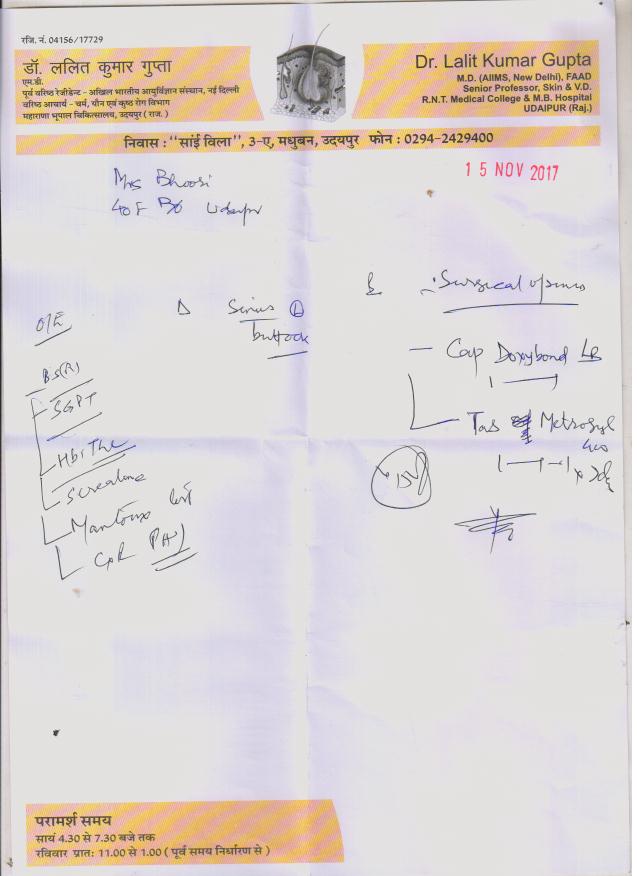 रजि. नं. 04156/17729
डॉ. ललित कुमार गुप्ता
एम.डी.
पूर्व वरिष्ठ रेजीडेन्ट - अखिल भारतीय आयुर्विज्ञान संस्थान, नई दिल्ली
वरिष्ठ आचार्य - चर्म, यौन एवं कुष्ठ रोग विभाग
महाराणा भूपाल चिकित्सालय, उदयपुर ( राज. )
Dr. Lalit Kumar Gupta
M.D. (AIIMS, New Delhi), FAAD
Senior Professor, Skin & V.D.
R.N.T. Medical College & M.B. Hospital
UDAIPUR (Raj.)
निवास : "सांई विला", 3-ए, मधुबन, उदयपुर फोन : 0294-2429400
15 NOV 2017
Mrs Bhoori
40 F Udaipur
Surgical
O/E
Sinus L
buttock
Cap Doxybond LB
BS(R)
SGPT
Tab Metrogyl
400
Hb, TLC
S. creatinine
Mantoux test
CXR PA
परामर्श समय
सायं 4.30 से 7.30 बजे तक
रविवार प्रातः 11.00 से 1.00 ( पूर्व समय निर्धारण से )